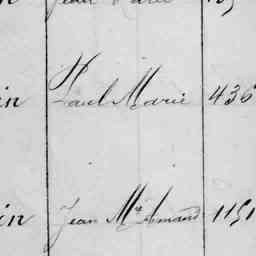 in Paul Marie 436
in Jean Mie Amand 1151